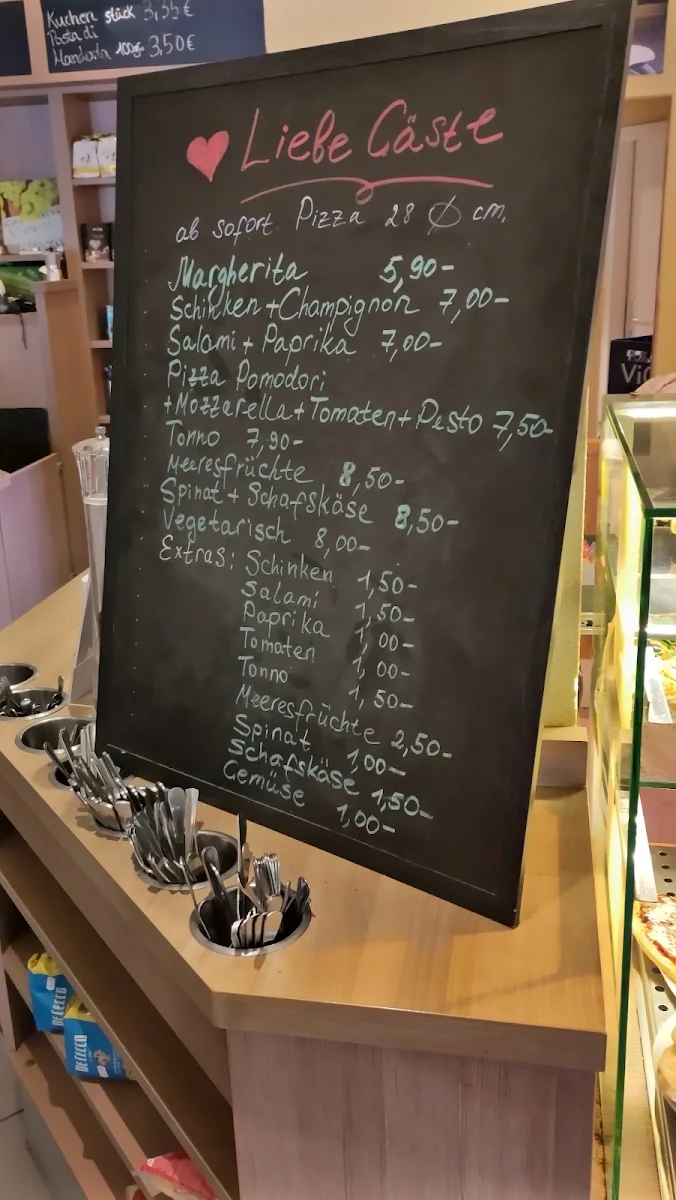 Kuchen stück 3,35€
Pasta di
Mandorla 100g 3,50€
Liebe Gäste
ab sofort Pizza 28 Ø cm.
Margherita 5,90-
Schinken+Champignon 7,00-
Salami+Paprika 7,00-
Pizza Pomodori
+Mozzarella+Tomaten+Pesto 7,50-
Tonno 7,90-
Meeresfrüchte 8,50-
Spinat+Schafskäse 8,50-
Vegetarisch 8,00-
Extras: Schinken 1,50-
Salami 1,50-
Paprika 1,00-
Tomaten 1,00-
Tonno 1,50-
Meeresfrüchte 2,50-
Spinat 1,00-
Schafskäse 1,50-
Gemüse 1,00-
DE CECCO
DE CECCO